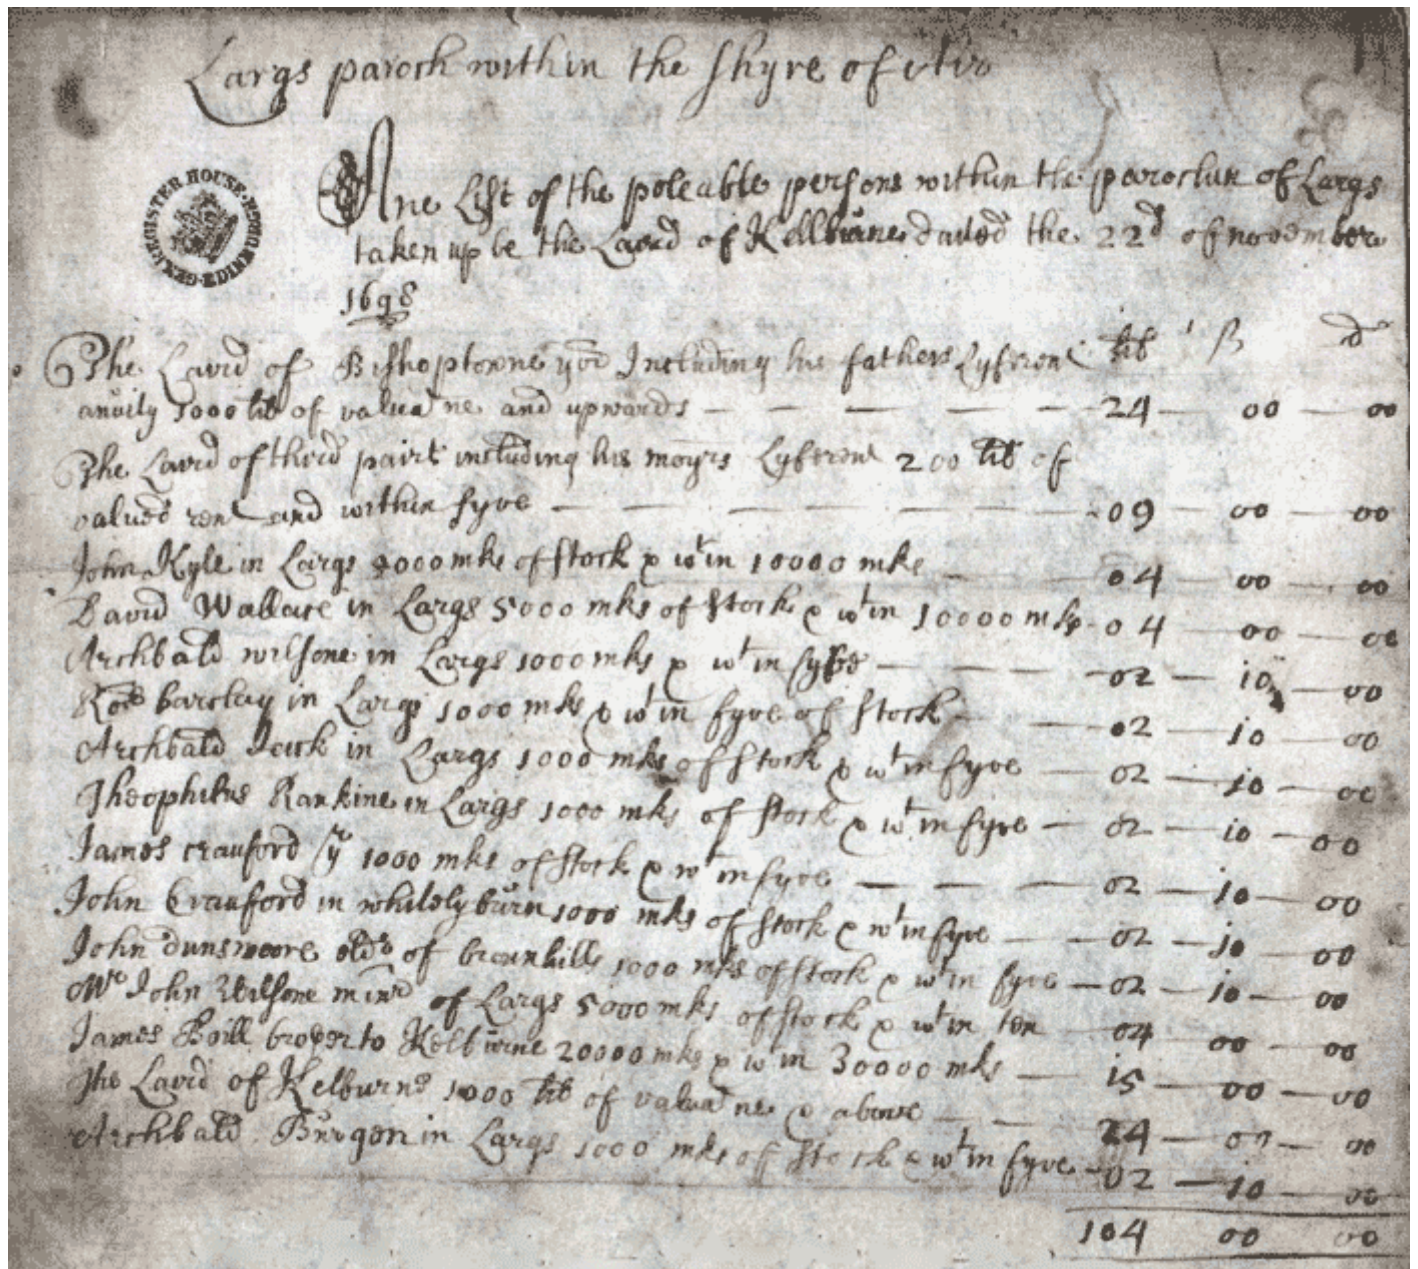 Largs paroch within the shyre of Air
Ane List of the poleable persons within the parochin of Largs
taken up be the Laird of Kelburne dated the 22d of november
1698
lib ß d
The Laird of Bishoptowne yor Including his fathers Lyfrent
anuity 1000 lib of valuatne and upwards — 24 — 00 — 00
The Laird of third pairt including his moyrs Lyfrent 200 lib of
valued rent and within fyve — 09 — 00 — 00
John Kyle in Largs 000 mks of stock & wt in 10000 mks — 04 — 00 — 00
David Wallace in Largs 5000 mks of stock & wt in 10000 mks - 04 — 00 — 00
Archbald wilsone in Largs 1000 mks & wt in fyve — 02 — 10 — 00
barclay in Largs 1000 mks & wt in fyve of stock — 02 — 10 — 00
Archbald in Largs 1000 mks of stock & wt in fyve — 02 — 10 — 00
Theophilus Rankine in Largs 1000 mks of stock & wt in fyve — 02 — 10 — 00
James crauford yr 1000 mks of stock & wt in fyve — 02 — 10 — 00
John Crauford in whitslyburn 1000 mks of stock & wt in fyve — 02 — 10 — 00
John dunsmoore oldr of brounhill 1000 mks of stock & wt in fyve — 02 — 10 — 00
Mr John Wilsone minr of Largs 5000 mks of stock & wt in ten — 04 — 00 — 00
James Boill broyer to Kelburne 20000 mks & wt in 30000 mks — 15 — 00 — 00
The Laird of Kelburne 1000 lib of valuatne & above — 24 — 00 — 00
Archbald Burgon in Largs 1000 mks of stock & wt in fyve — 02 — 10 — 00
104 00 00
GEN. REGISTER HOUSE. EDINBURGH